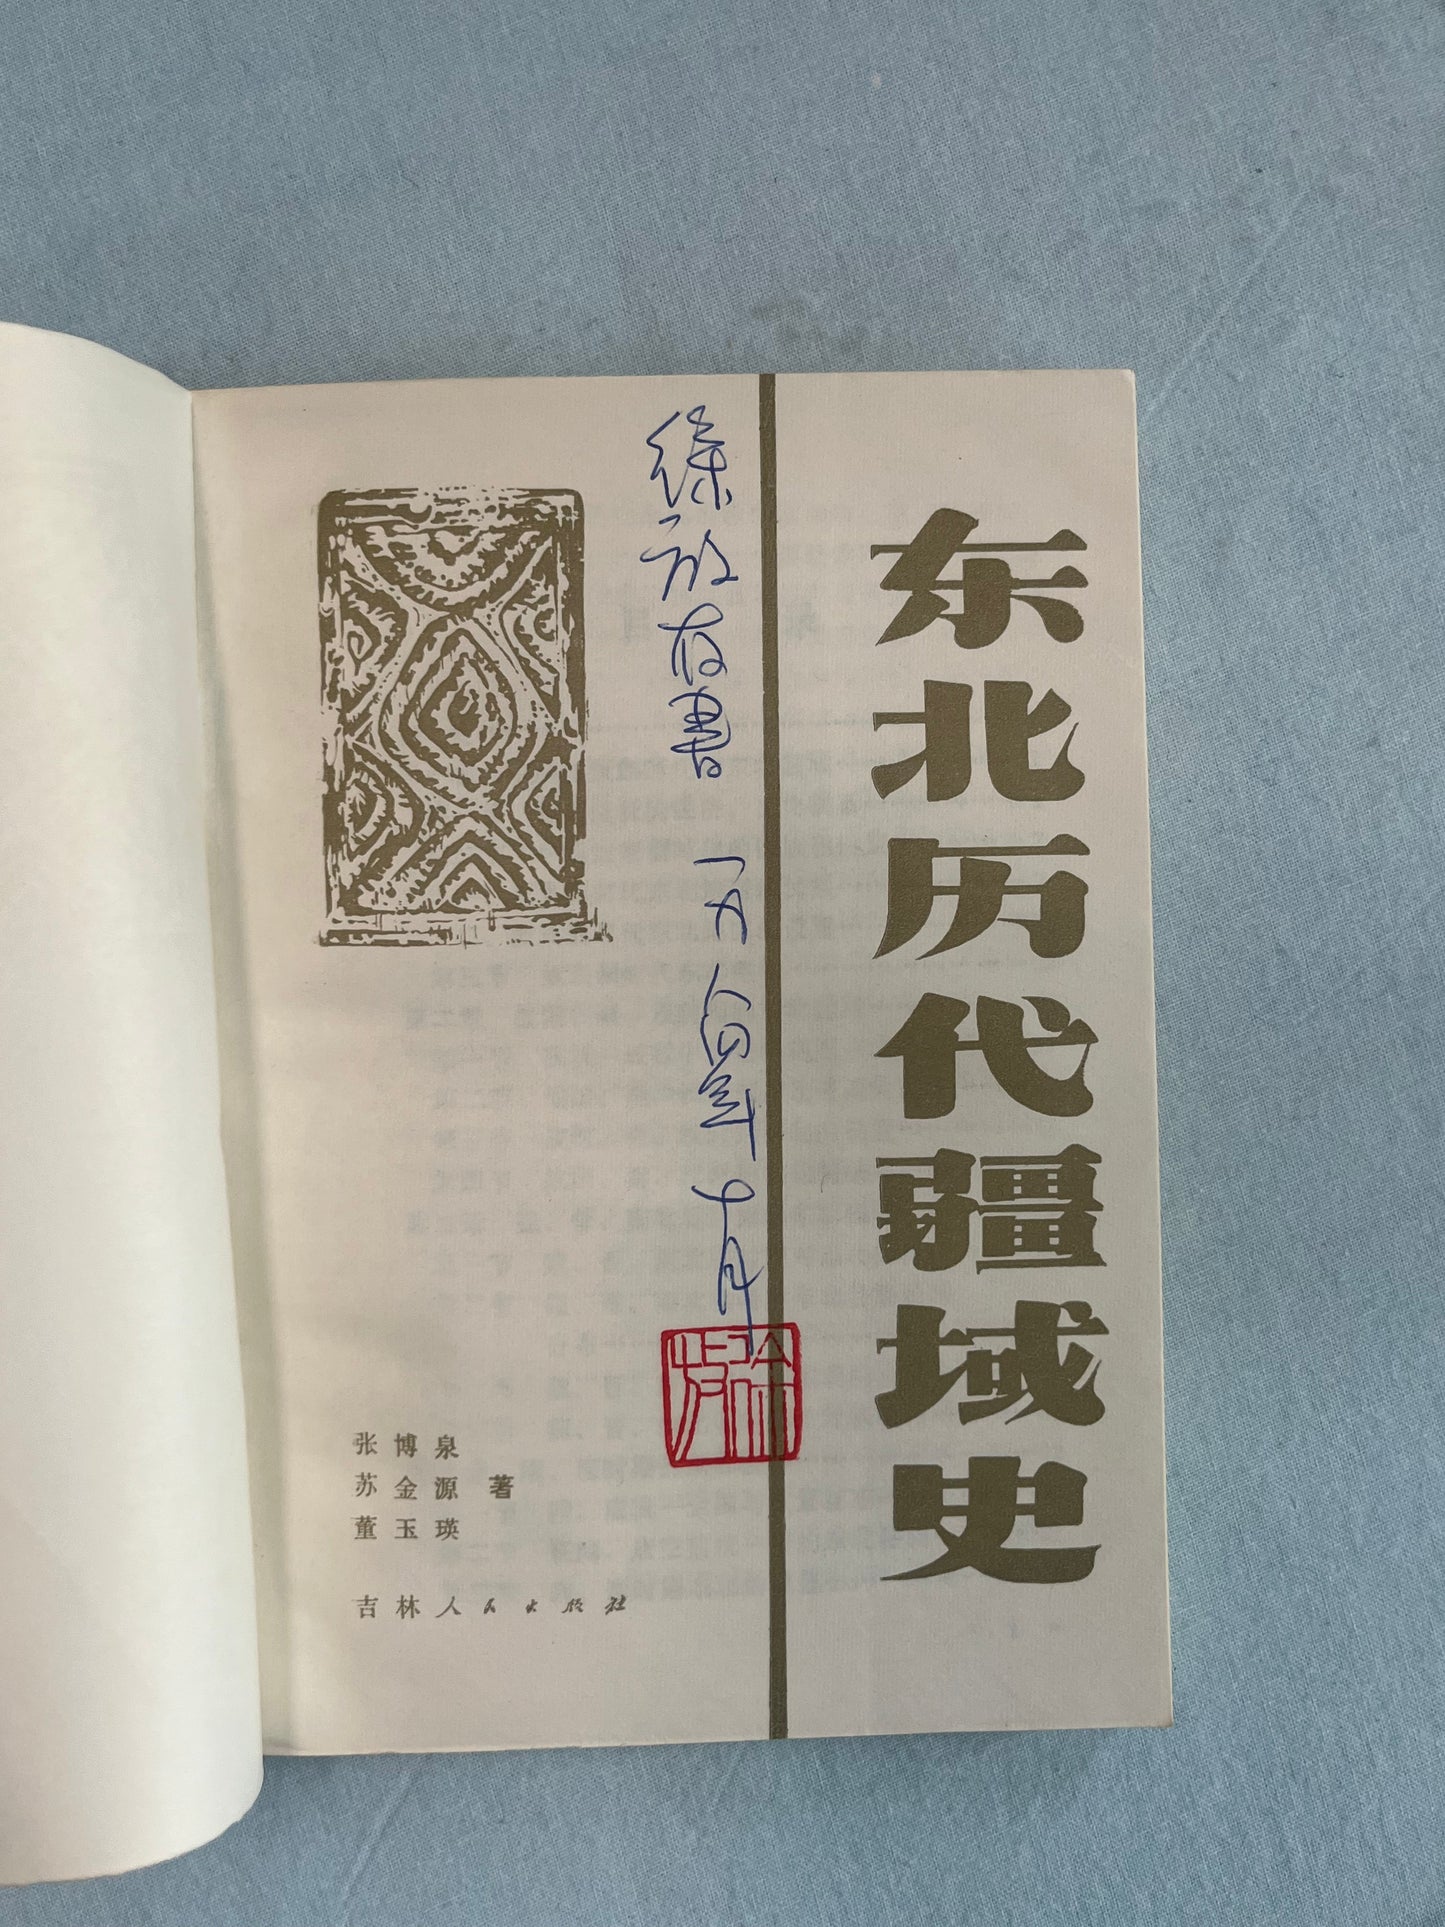 东北历代疆域史
徐放存書
一九八四年十月
徐放
张博泉
苏金源 著
董玉瑛
吉林人民出版社